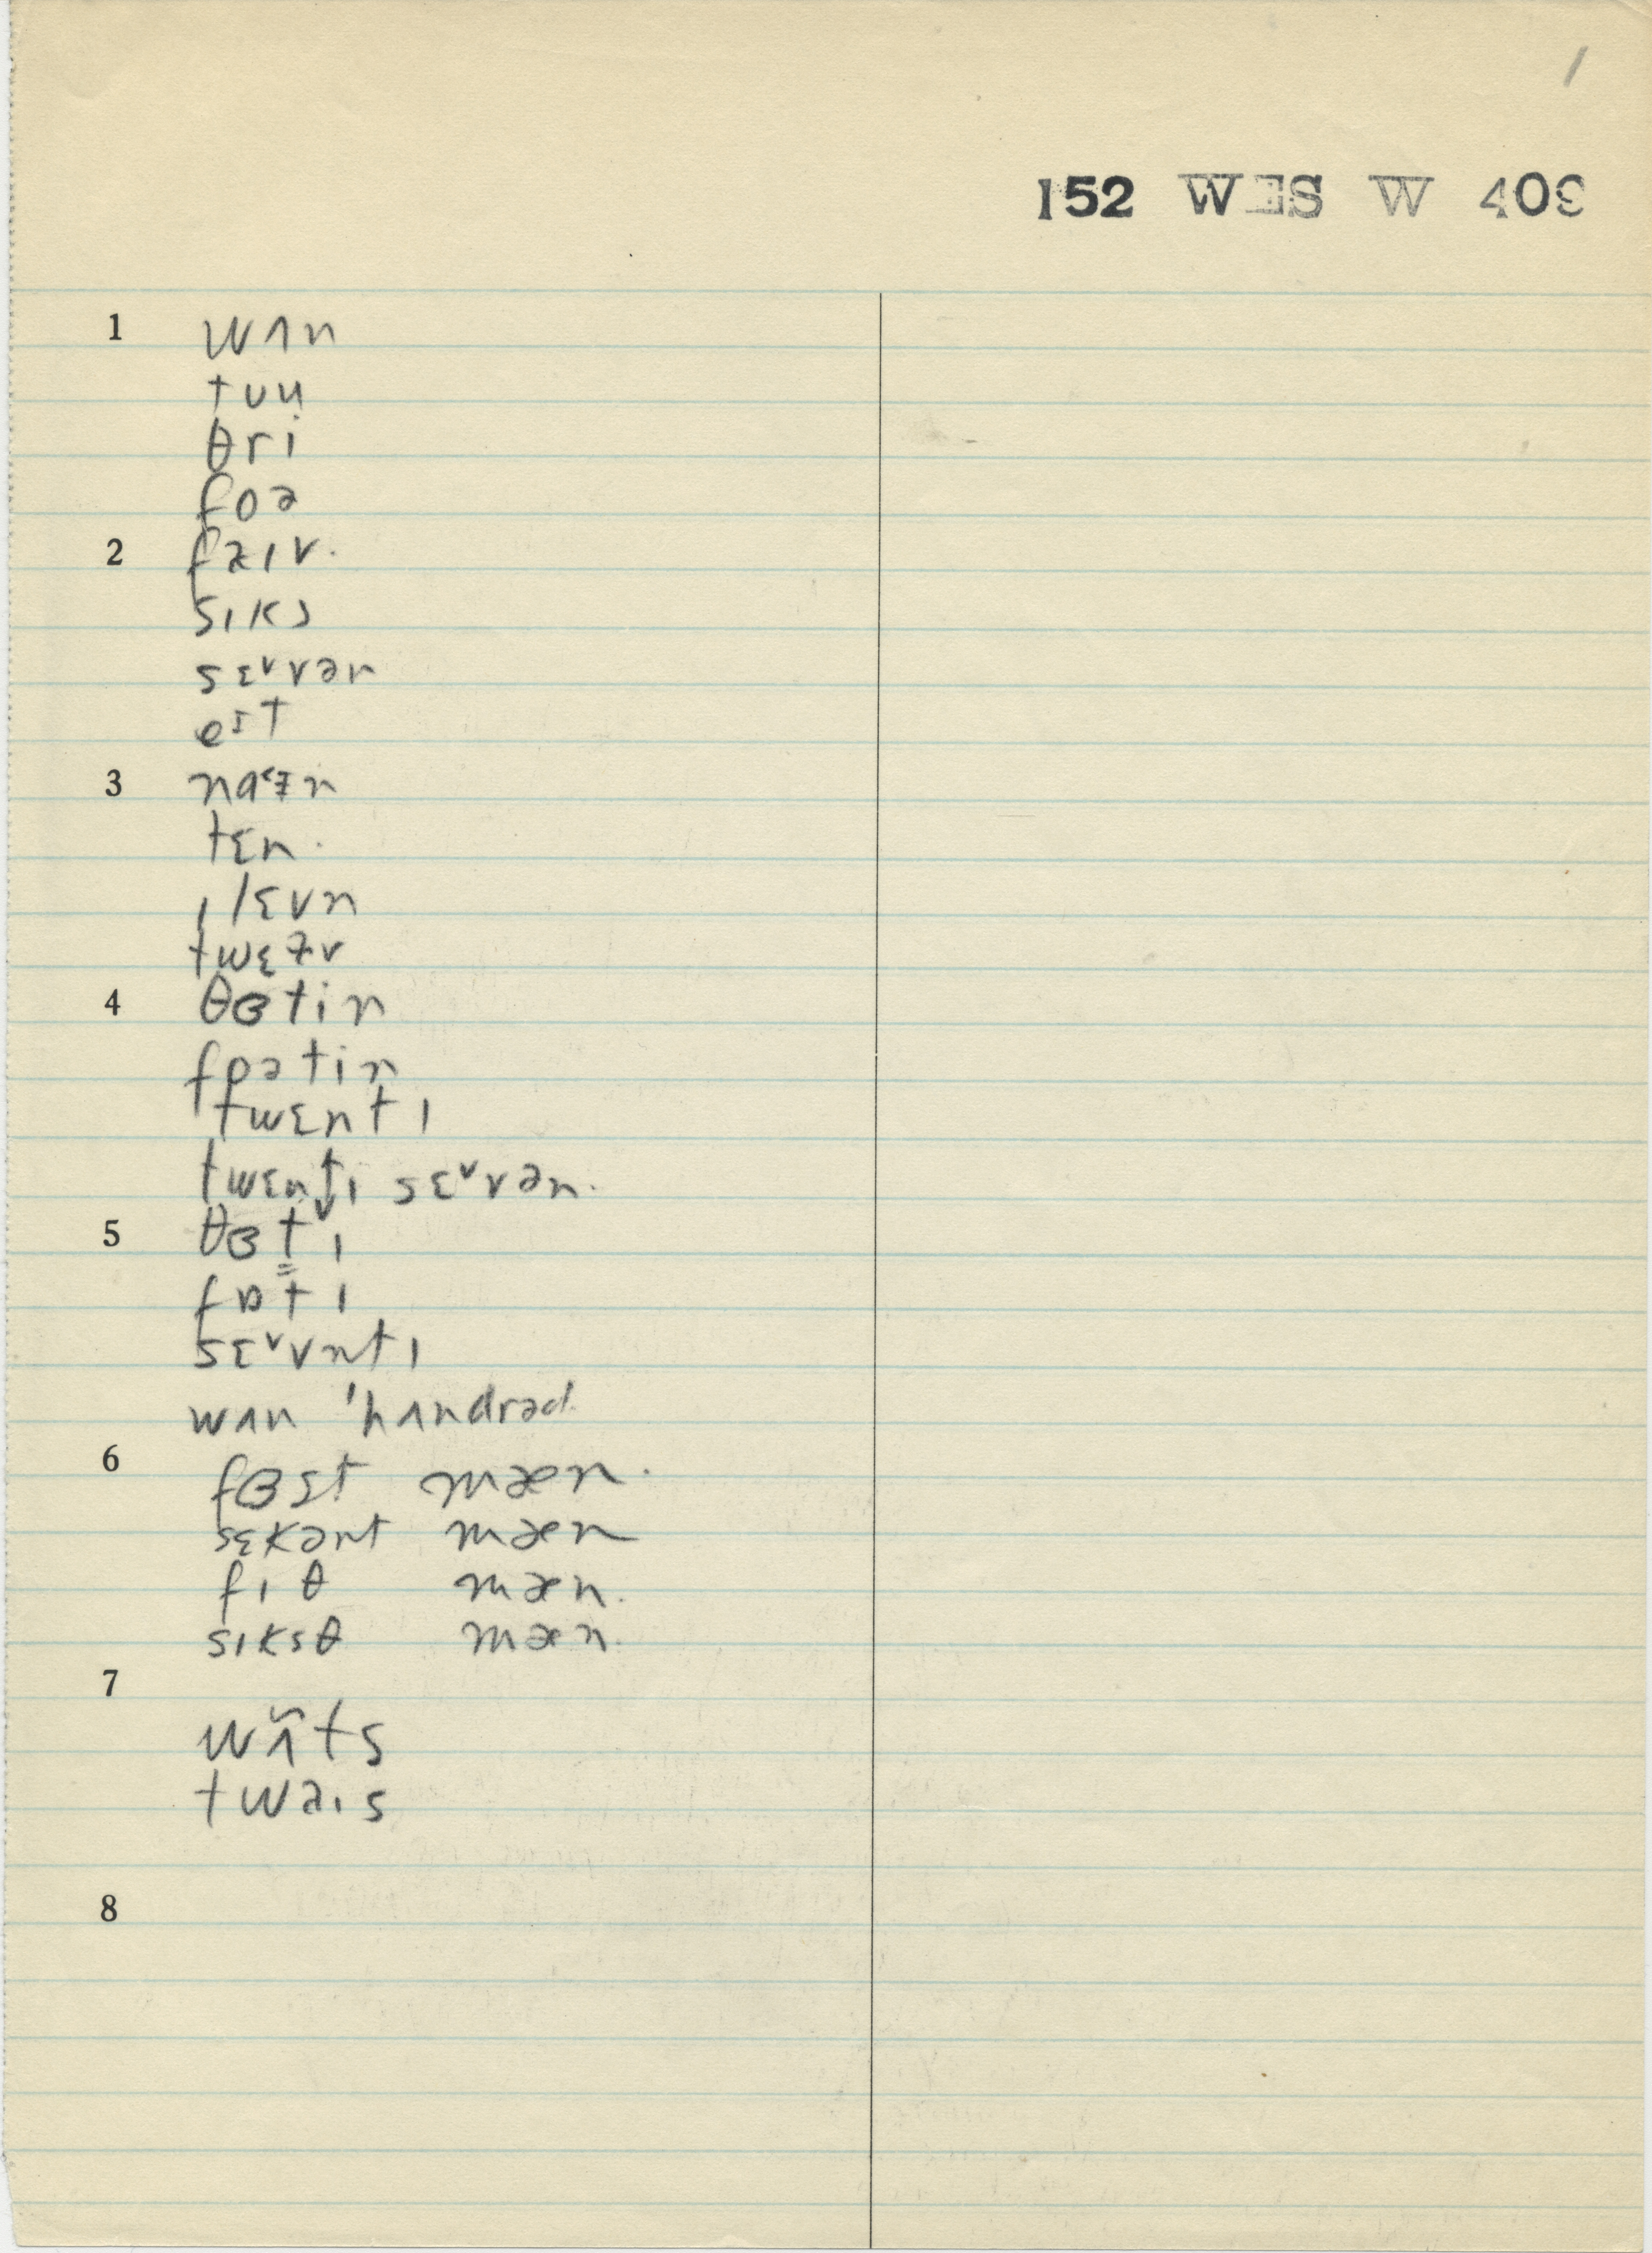 1
152 WES W 409
1 wʌn
tuu
θri
foə
2 faɪv.
sɪks
sɛᵛvən
eɪt
3 naᵋɪn
tɛn.
ɪlɛvn
twɛɫv
4 θɞtin
fɒətin
twɛntɪ
twɛnt̬ɪ sɛᵛvən.
5 θɞt̬ɪ
fɒt̬ɪ
sɛᵛvntɪ
wʌn 'hʌndrəd.
6 fɞst mæn.
sɛkənt mæn
fɪθ mæn.
sɪksθ mæn.
7
wʌ̃ts
twaɪs
8